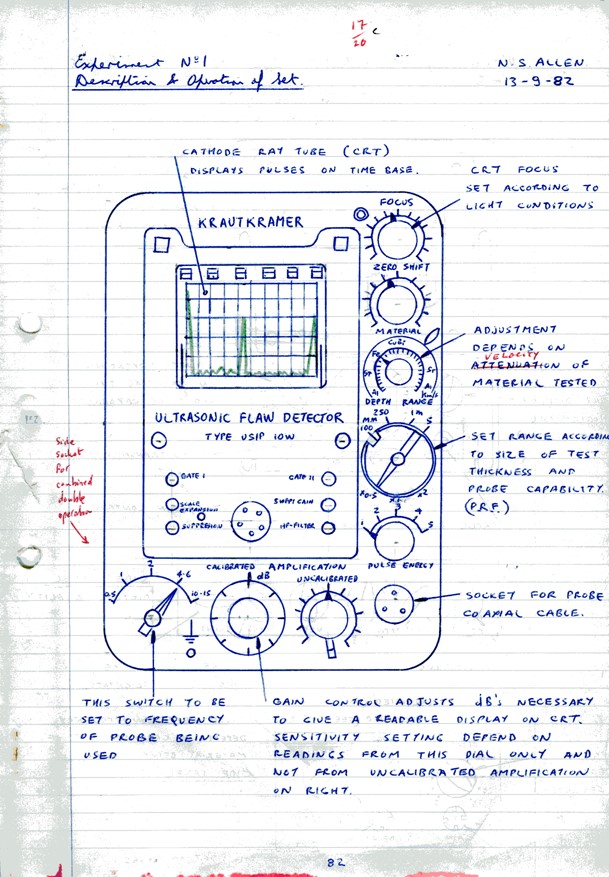 17
20
Experiment Nº1
Description & Operation of Set.
N.S. ALLEN
13-9-82
CATHODE RAY TUBE (CRT)
DISPLAYS PULSES ON TIME BASE.
CRT FOCUS
SET ACCORDING TO
LIGHT CONDITIONS
FOCUS
KRAUTKRAMER
ZERO SHIFT
MATERIAL
ADJUSTMENT
DEPENDS ON
VELOCITY
ATTENUATION OF
MATERIAL TESTED
DEPTH RANGE
250
1m
MM
100
5
x0.5
x2
ULTRASONIC FLAW DETECTOR
TYPE USIP 10W
SET RANGE ACCORDING
TO SIZE OF TEST
THICKNESS AND
PROBE CAPABILITY.
(P.R.F.)
Side
socket
for
combined
double
operation
GATE I
GATE II
SCALE
EXPANSION
SUPP: GAIN
SUPPRESION
HF-FILTER
1
2
3
4
5
PULSE ENERGY
CALIBRATED AMPLIFICATION
dB
UNCALIBRATED
0.5
1
2
4-6
10-15
SOCKET FOR PROBE
COAXIAL CABLE.
THIS SWITCH TO BE
SET TO FREQUENCY
OF PROBE BEING
USED
GAIN CONTROL ADJUSTS dB's NECESSARY
TO GIVE A READABLE DISPLAY ON CRT.
SENSITIVITY SETTING DEPEND ON
READINGS FROM THIS DIAL ONLY AND
NOT FROM UNCALIBRATED AMPLIFICATION
ON RIGHT.
82